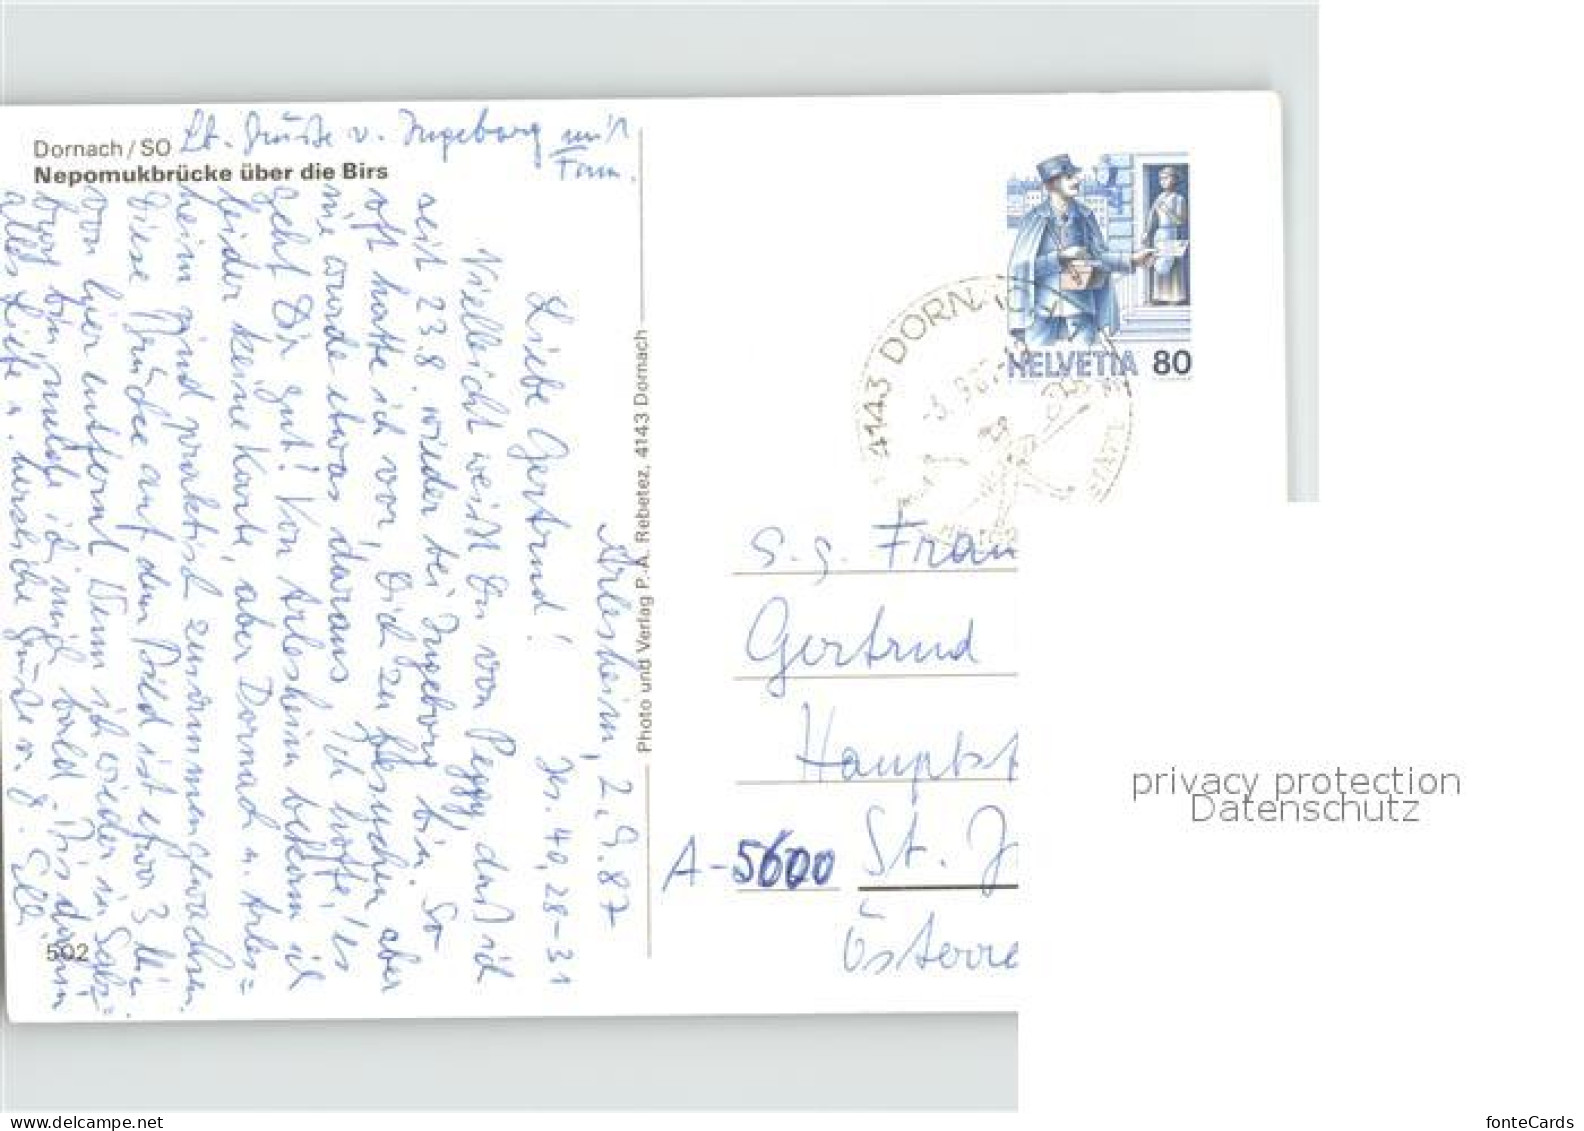 Dornach / SO
Nepomukbrücke über die Birs
Lb. Grüße v. Ingeborg mit
Fam.
Arlesheim, 2.9.87
Jes. 40, 28-31
Liebe Gertrud!
Vielleicht weißt Du von Peggy, daß ich
seit 23.8. wieder bei Ingeborg bin. So
oft hatte ich vor, Dich zu besuchen aber
nie wurde etwas daraus. Ich hoffe, es
geht Dir gut! Von Arlesheim bekam ich
leider keine Karte, aber Dornach u. Arles=
heim sind praktisch zusammengewachsen.
Diese Brücke auf dem Bild ist etwa 3 Min
von hier entfernt. Wenn ich wieder in Salz=
burg bin, melde ich mich bald. Bis dahin
alles Liebe u. herzliche Grüße v.
502
Photo und Verlag P.-A. Rebetez, 4143 Dornach
HELVETIA 80
4143 DORNACH
S. g. Frau
Gertrud
Hauptst
A-5600 St. J
Österre
privacy protection
Datenschutz
fonteCards